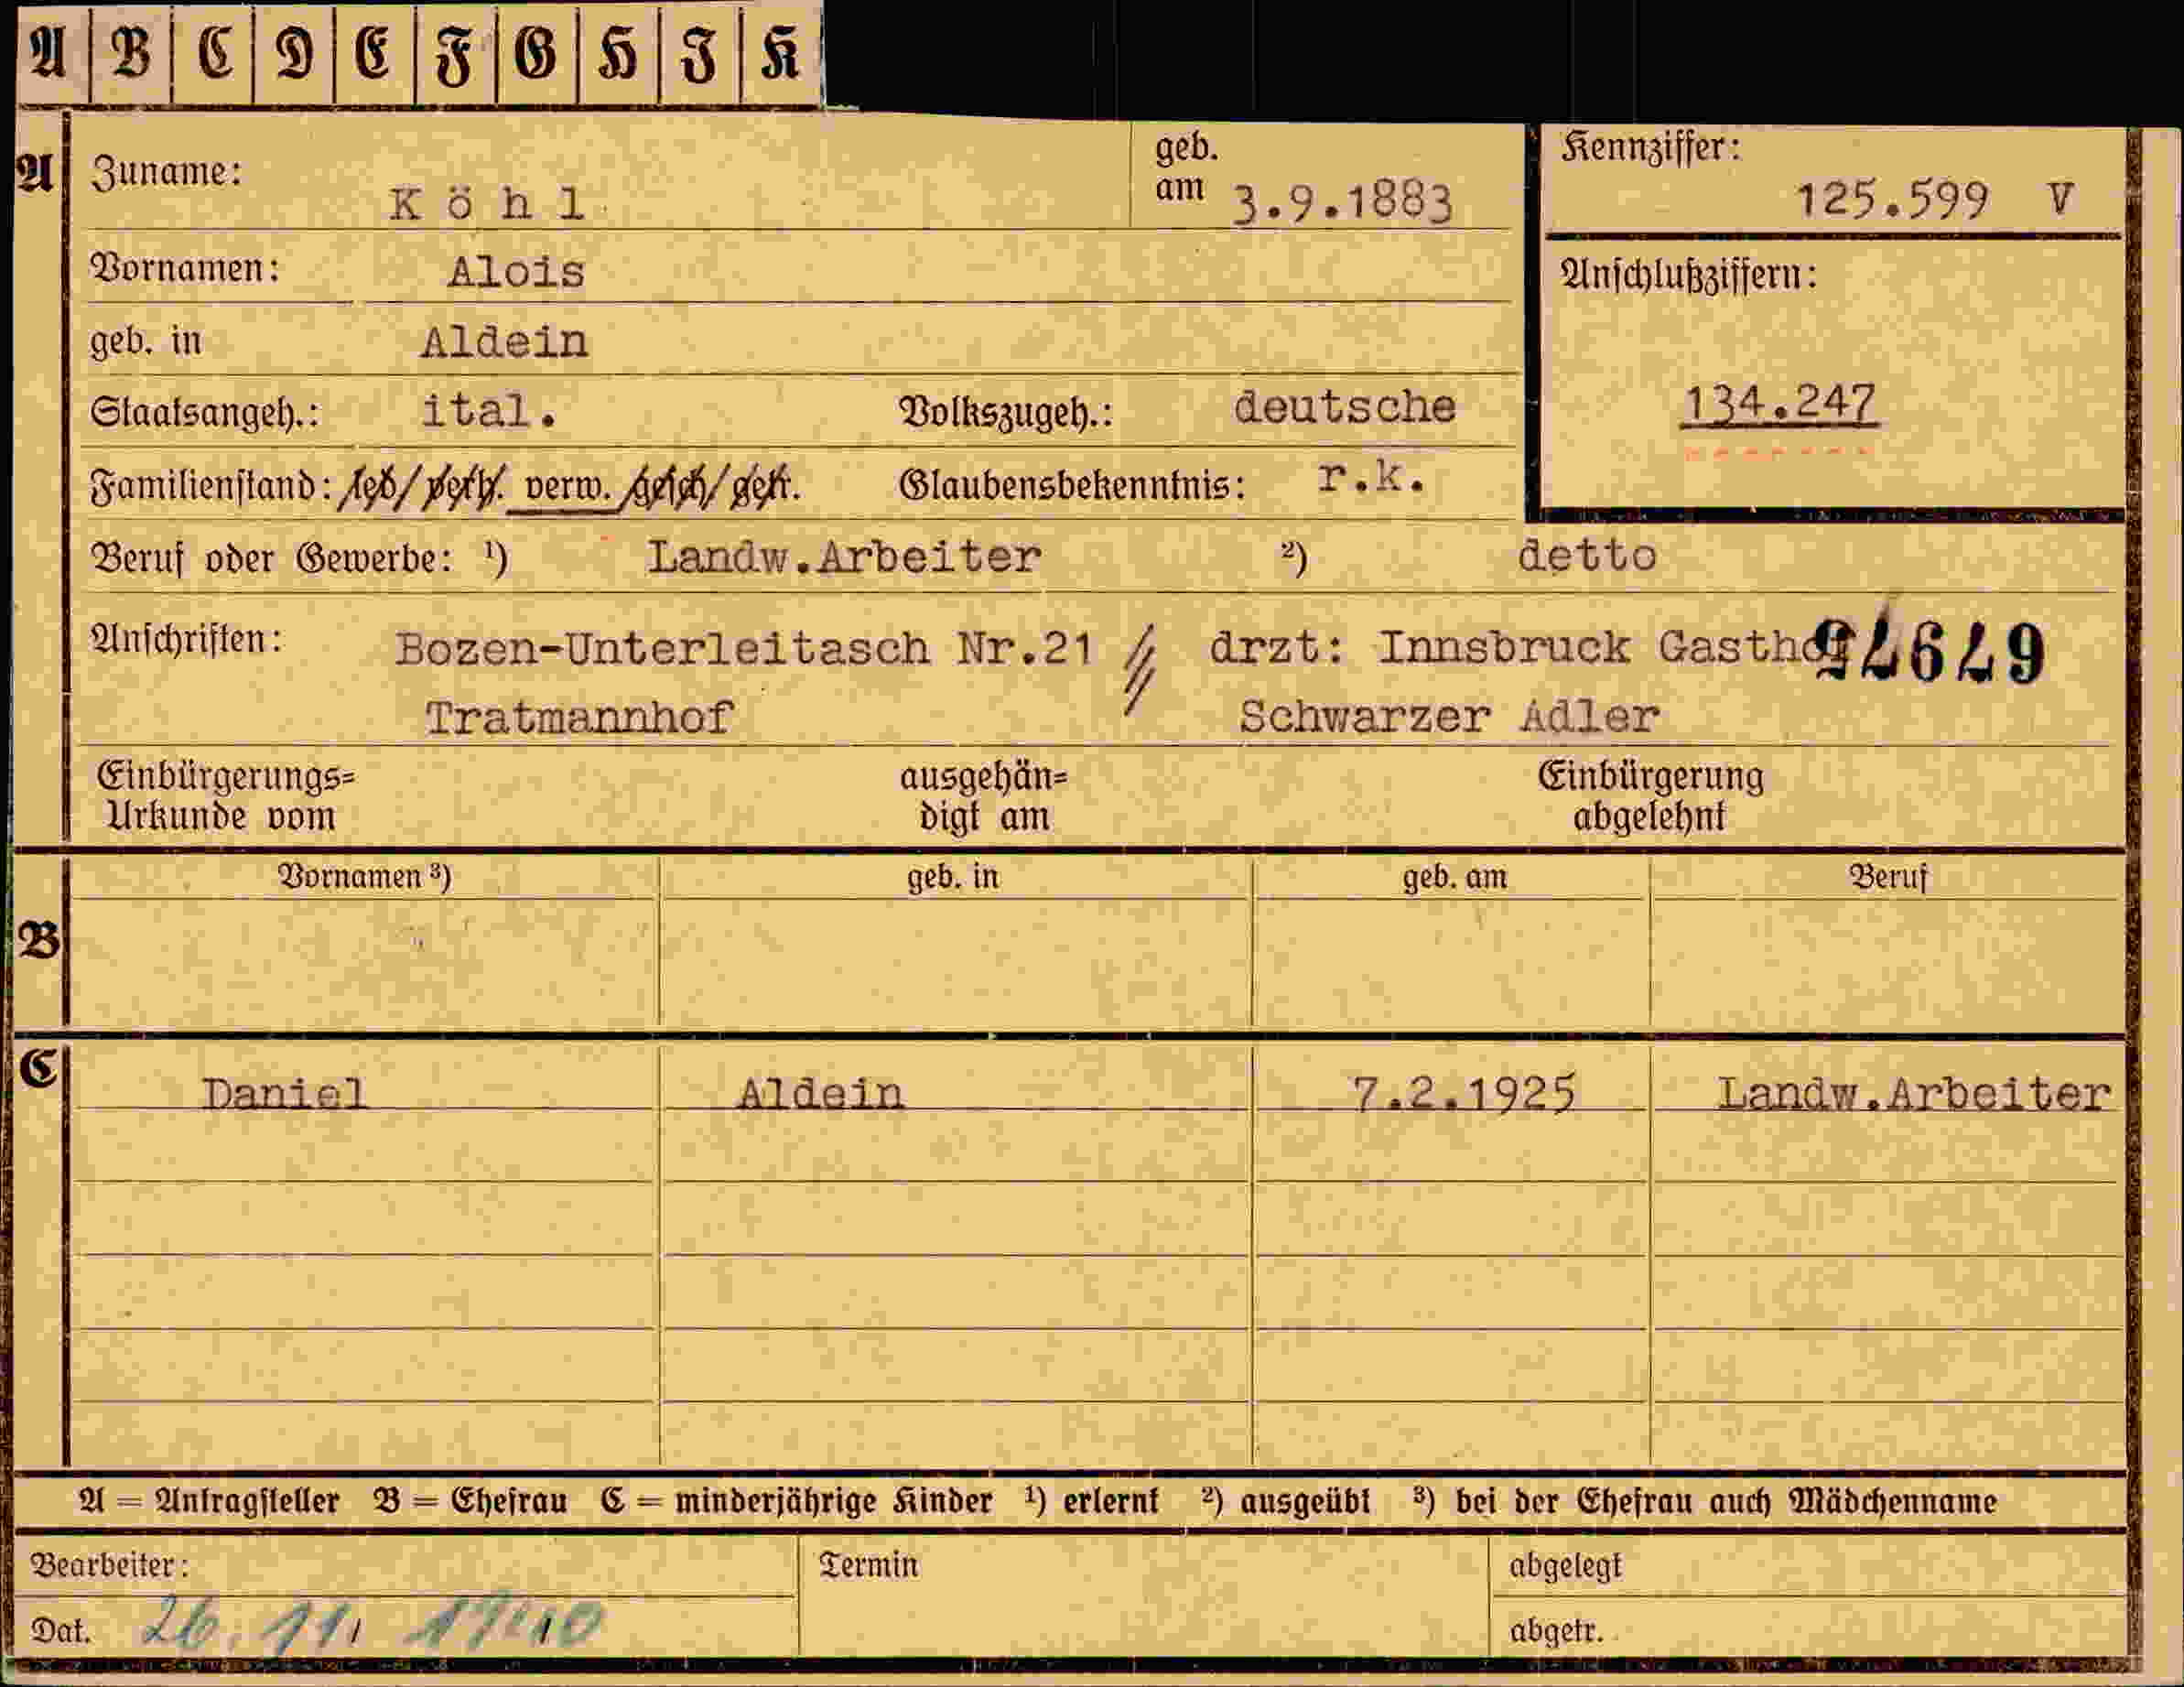 A B C D E F G H J K
A Zuname: Köhl geb. am 3.9.1883 Kennziffer: 125.599 V
Vornamen: Alois Anschlußziffern:
geb. in Aldein
Staatsangeh.: ital. Volkszugeh.: deutsche 134.247
Familienstand: led. verh. verw. gesch. getr. Glaubensbekenntnis: r.k.
Beruf oder Gewerbe: ¹) Landw.Arbeiter ²) detto
Anschriften: Bozen-Unterleitasch Nr.21 drzt: Innsbruck Gasthof
Tratmannhof Schwarzer Adler
Einbürgerungs= ausgehän= Einbürgerung
Urkunde vom digt am abgelehnt
B Vornamen ³) geb. in geb. am Beruf
C Daniel Aldein 7.2.1925 Landw.Arbeiter
A = Antragsteller B = Ehefrau C = minderjährige Kinder ¹) erlernt ²) ausgeübt ³) bei der Ehefrau auch Mädchenname
Bearbeiter: Termin abgelegt
Dat. 26. 11. 1940 abgetr.